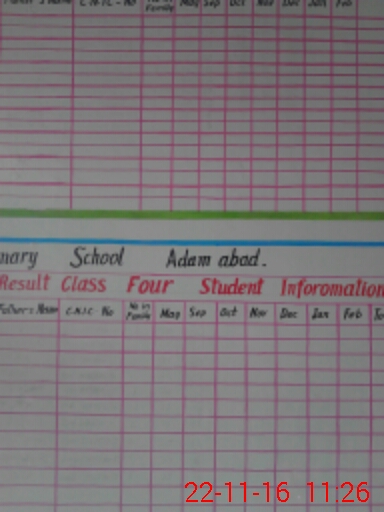 Father's Name C.N.I.C - No No in Family May Sep Oct Nov Dec Jan Feb
mary School Adam abad.
Result Class Four Student Inforomation
Father's Name C.N.I.C No No in Famile May Sep Oct Nov Dec Jan Feb
22-11-16 11:26